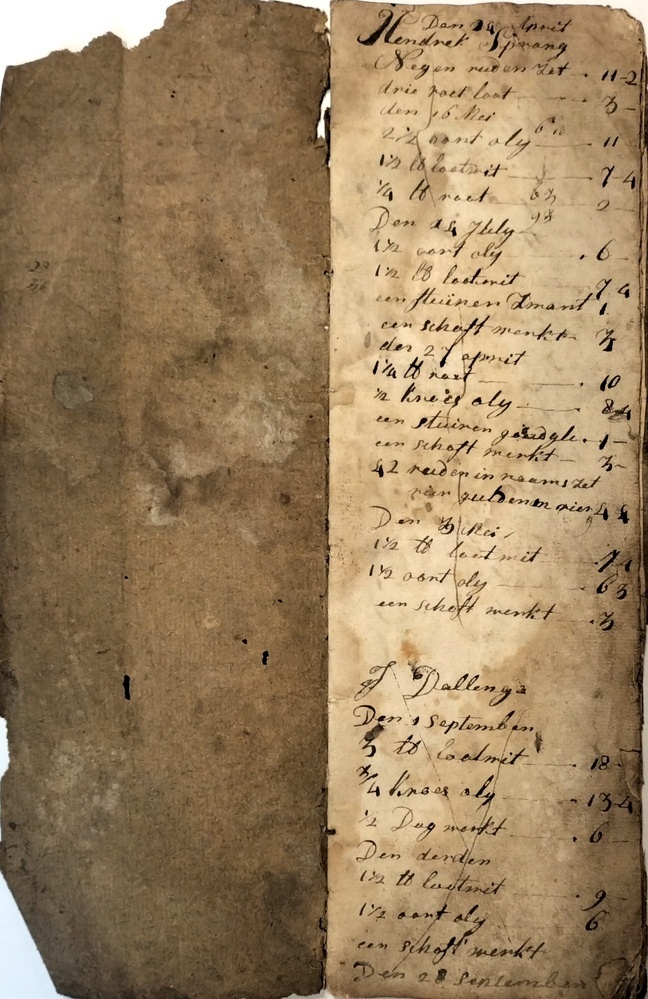 Den 24 April
Hendrek Sprong
Negen ruiden Zet 11-2
drie roet loot 3-
den 16 Mei
2 1/2 oort oly 11
1 1/2 lb lootwit 7-4
1/4 lb roet 2
Den 24 July
1 1/2 oort oly 6
1 1/2 lb lootwit 7 4
een stuiver Zmant 1
een schoft werkt 3
den 27 april
1 1/4 lb roet 10
1/2 kroes oly 8-4
een stuiver 1-
een schoft werkt 3-
42 ruiden in raams zet
vier guldenen vier 4 4
Den 3 Mei
1 1/2 lb lootwit 7-4
1 1/2 oort oly 6 3
een schoft werkt 3
J Dallenga
Den 1 September
3 lb lootwit 18-
3/4 kroes oly 13-4
1/2 Dag werkt 6
Den derden
1 1/2 lb lootwit 9
1 1/2 oort oly 6
een schoft werkt
Den 28 September